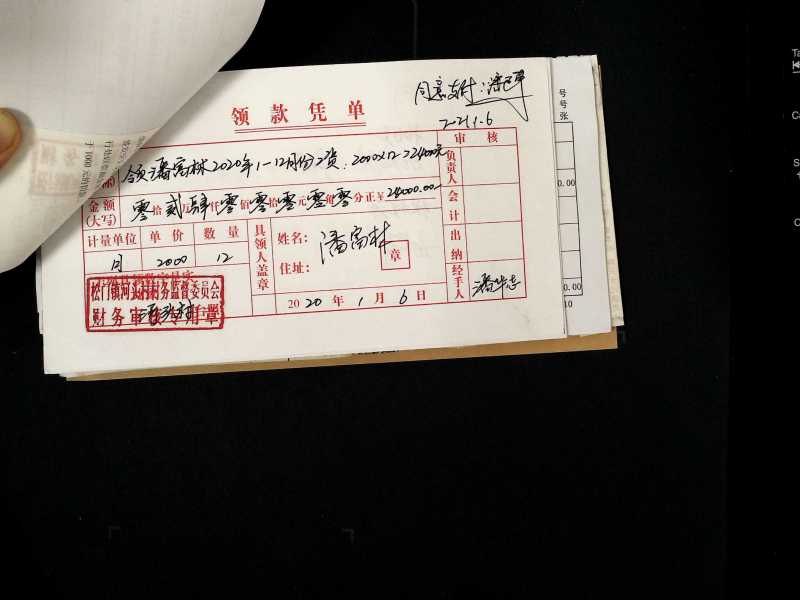 同意支付
2021.1.6
领款凭单
审核
领潘富林2020年1—12月份工资:2000×12=24000元
负责人
金额
(大写)
零拾贰万肆仟零佰零拾零元零角零分正¥24000.00
会计
计量单位 单价 数量
月 2000 12
具领人盖章
姓名: 潘富林
住址:
章
出纳
经手人
2020年1月6日
松门镇河头村村务监督委员会
财务审核专用章
于1000
号
号
张
0.00
0.00
10